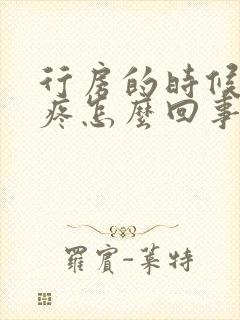 行房的時候
疼怎麼回事
羅賓-萊特